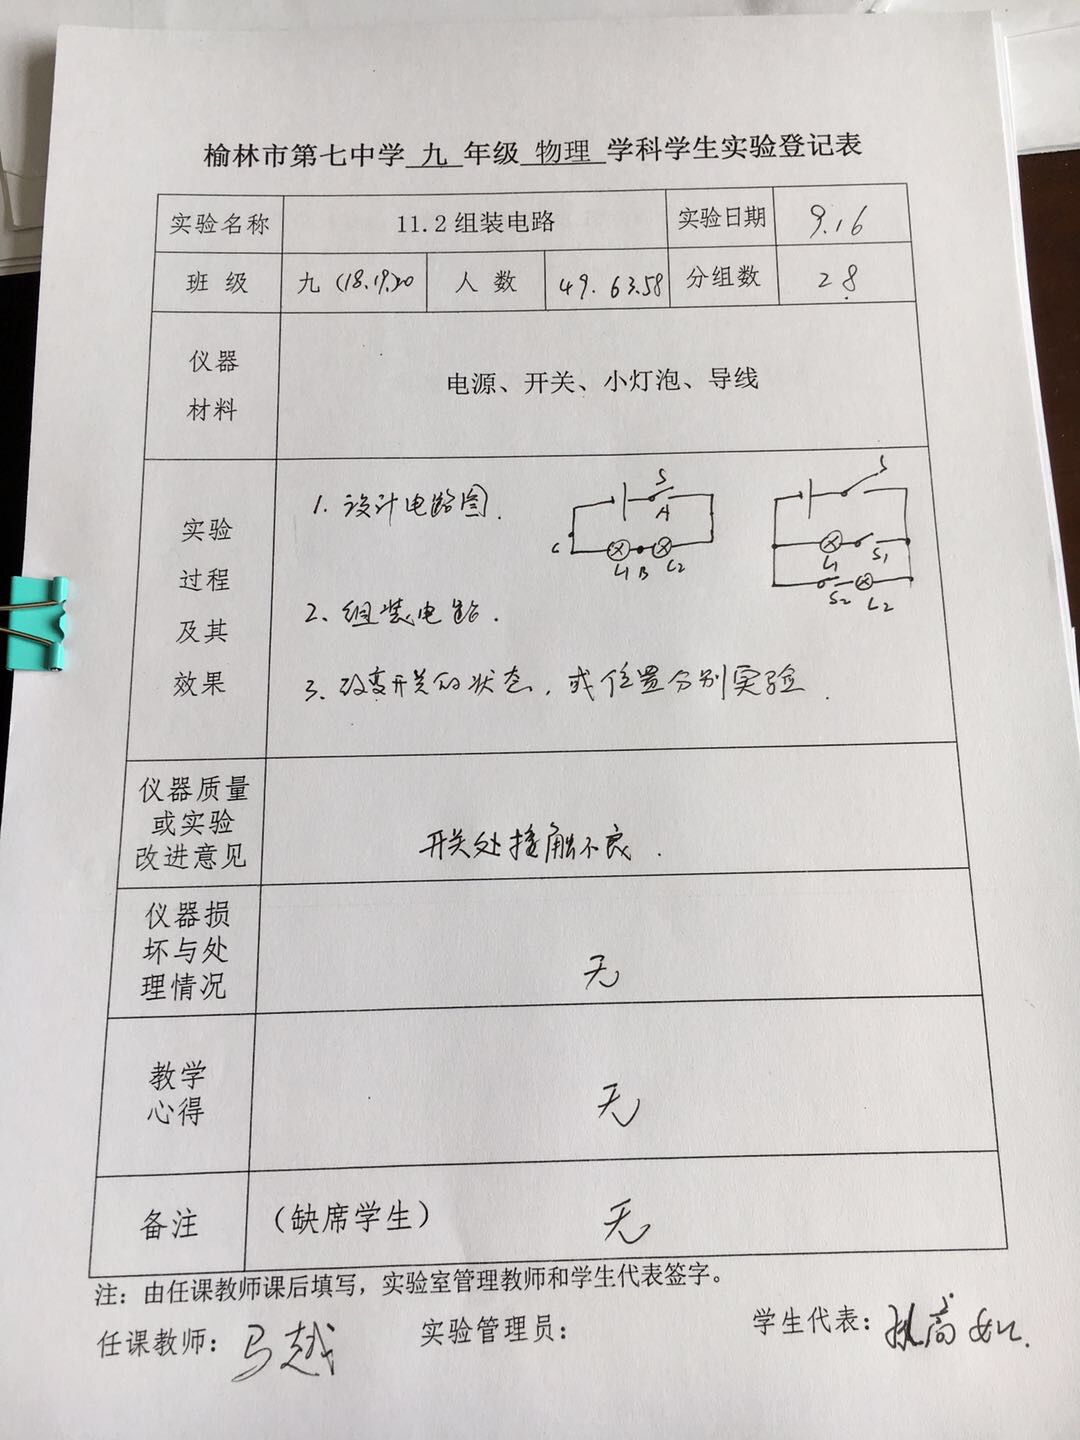 榆林市第七中学 九 年级 物理 学科学生实验登记表
实验名称 11.2组装电路 实验日期 9.16
班 级 九(18.19)20 人 数 49. 63.58 分组数 28
仪器
材料
电源、开关、小灯泡、导线
实验
过程
及其
效果
1. 设计电路图.
S
A
C
L1 B L2
S
L1 S1
S2 L2
2. 组装电路.
3. 改变开关的状态, 或位置分别实验.
仪器质量
或实验
改进意见
开关处接触不良.
仪器损
坏与处
理情况
无
教学
心得
无
备注 (缺席学生) 无
注:由任课教师课后填写,实验室管理教师和学生代表签字。
任课教师: 马越 实验管理员: 学生代表: